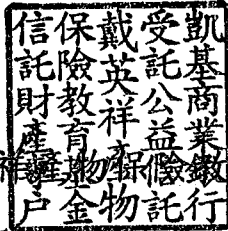 凱基商業銀行
受託公益信託
戴英祥產物
保險教育基金
信託財產專戶